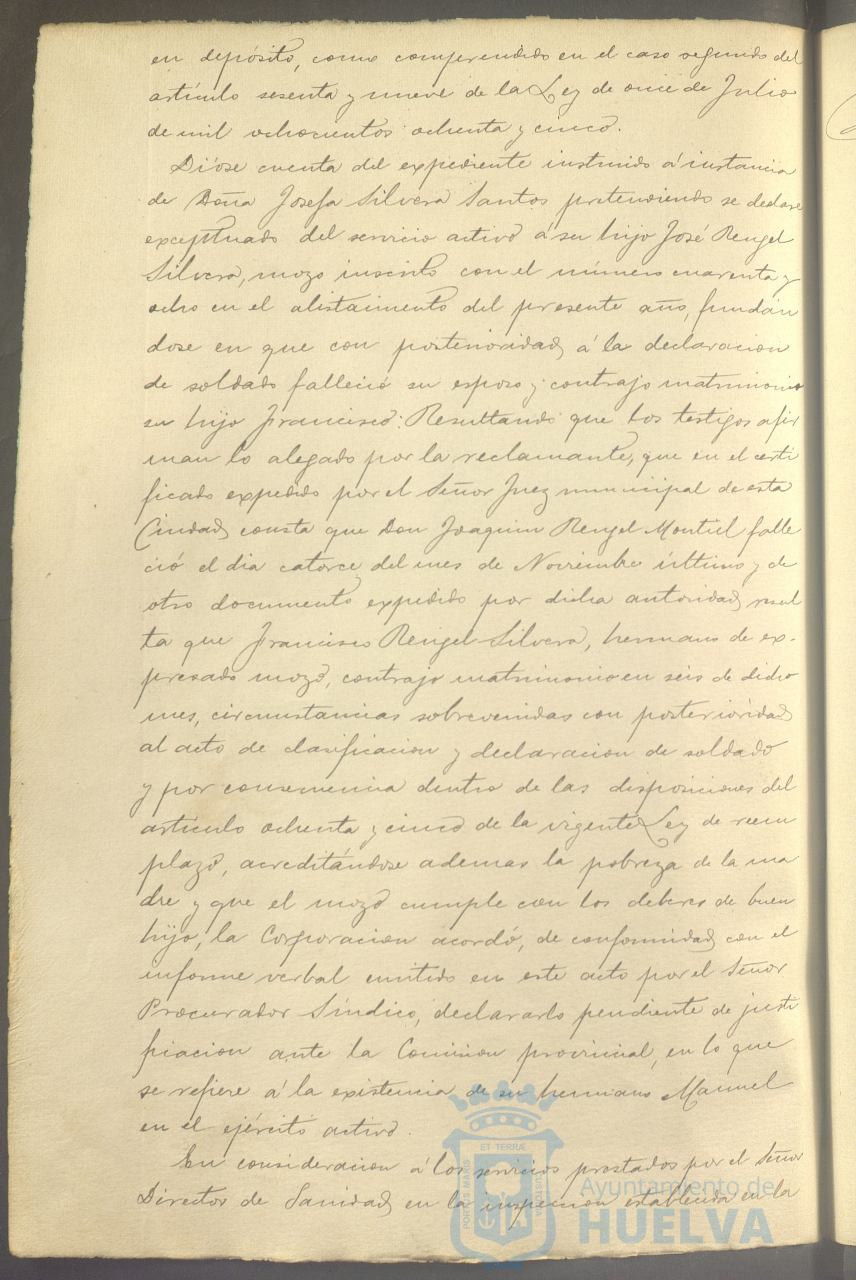 en depósito, como comprendido en el caso segundo del
artículo sesenta y nueve de la Ley de once de Julio
de mil ochocientos ochenta y cinco.
Dióse cuenta del expediente instruido á instancia
de Doña Josefa Silvera Santos pretendiendo se declare
exceptuado del servicio activo á su hijo José Rengel
Silvera, mozo inscrito con el número cuarenta y
ocho en el alistamiento del presente año, fundán
dose en que con posterioridad á la declaracion
de soldado falleció su esposo y contrajo matrimonio
su hijo Francisco: Resultando que los testigos afir
man lo alegado por la reclamante, que en el certi
ficado expedido por el Señor Juez municipal de esta
Ciudad consta que Don Joaquin Rengel Montiel falle
ció el dia catorce del mes de Noviembre último y de
otro documento expedido por dicha autoridad resul
ta que Francisco Rengel Silvera, hermano de ex-
presado mozo, contrajo matrimonio en seis de dicho
mes, circunstancias sobrevenidas con posterioridad
al acto de clasificacion y declaracion de soldado
y por consecuencia dentro de las disposiciones del
artículo ochenta y cinco de la vigente Ley de reem
plazo, acreditándose ademas la pobreza de la ma
dre y que el mozo cumple con los deberes de buen
hijo, la Corporacion acordó, de conformidad con el
informe verbal emitido en este acto por el Señor
Procurador Síndico, declararlo pendiente de justi
ficacion ante la Comision provincial, en lo que
se refiere á la existencia de su hermano Manuel
en el ejército activo.
En consideracion á los servicios prestados por el Señor
Director de Sanidad en la inspeccion establecida en la
ET TERRAE
PORTUS MARIS
CUSTODIA
Ayuntamiento de
HUELVA